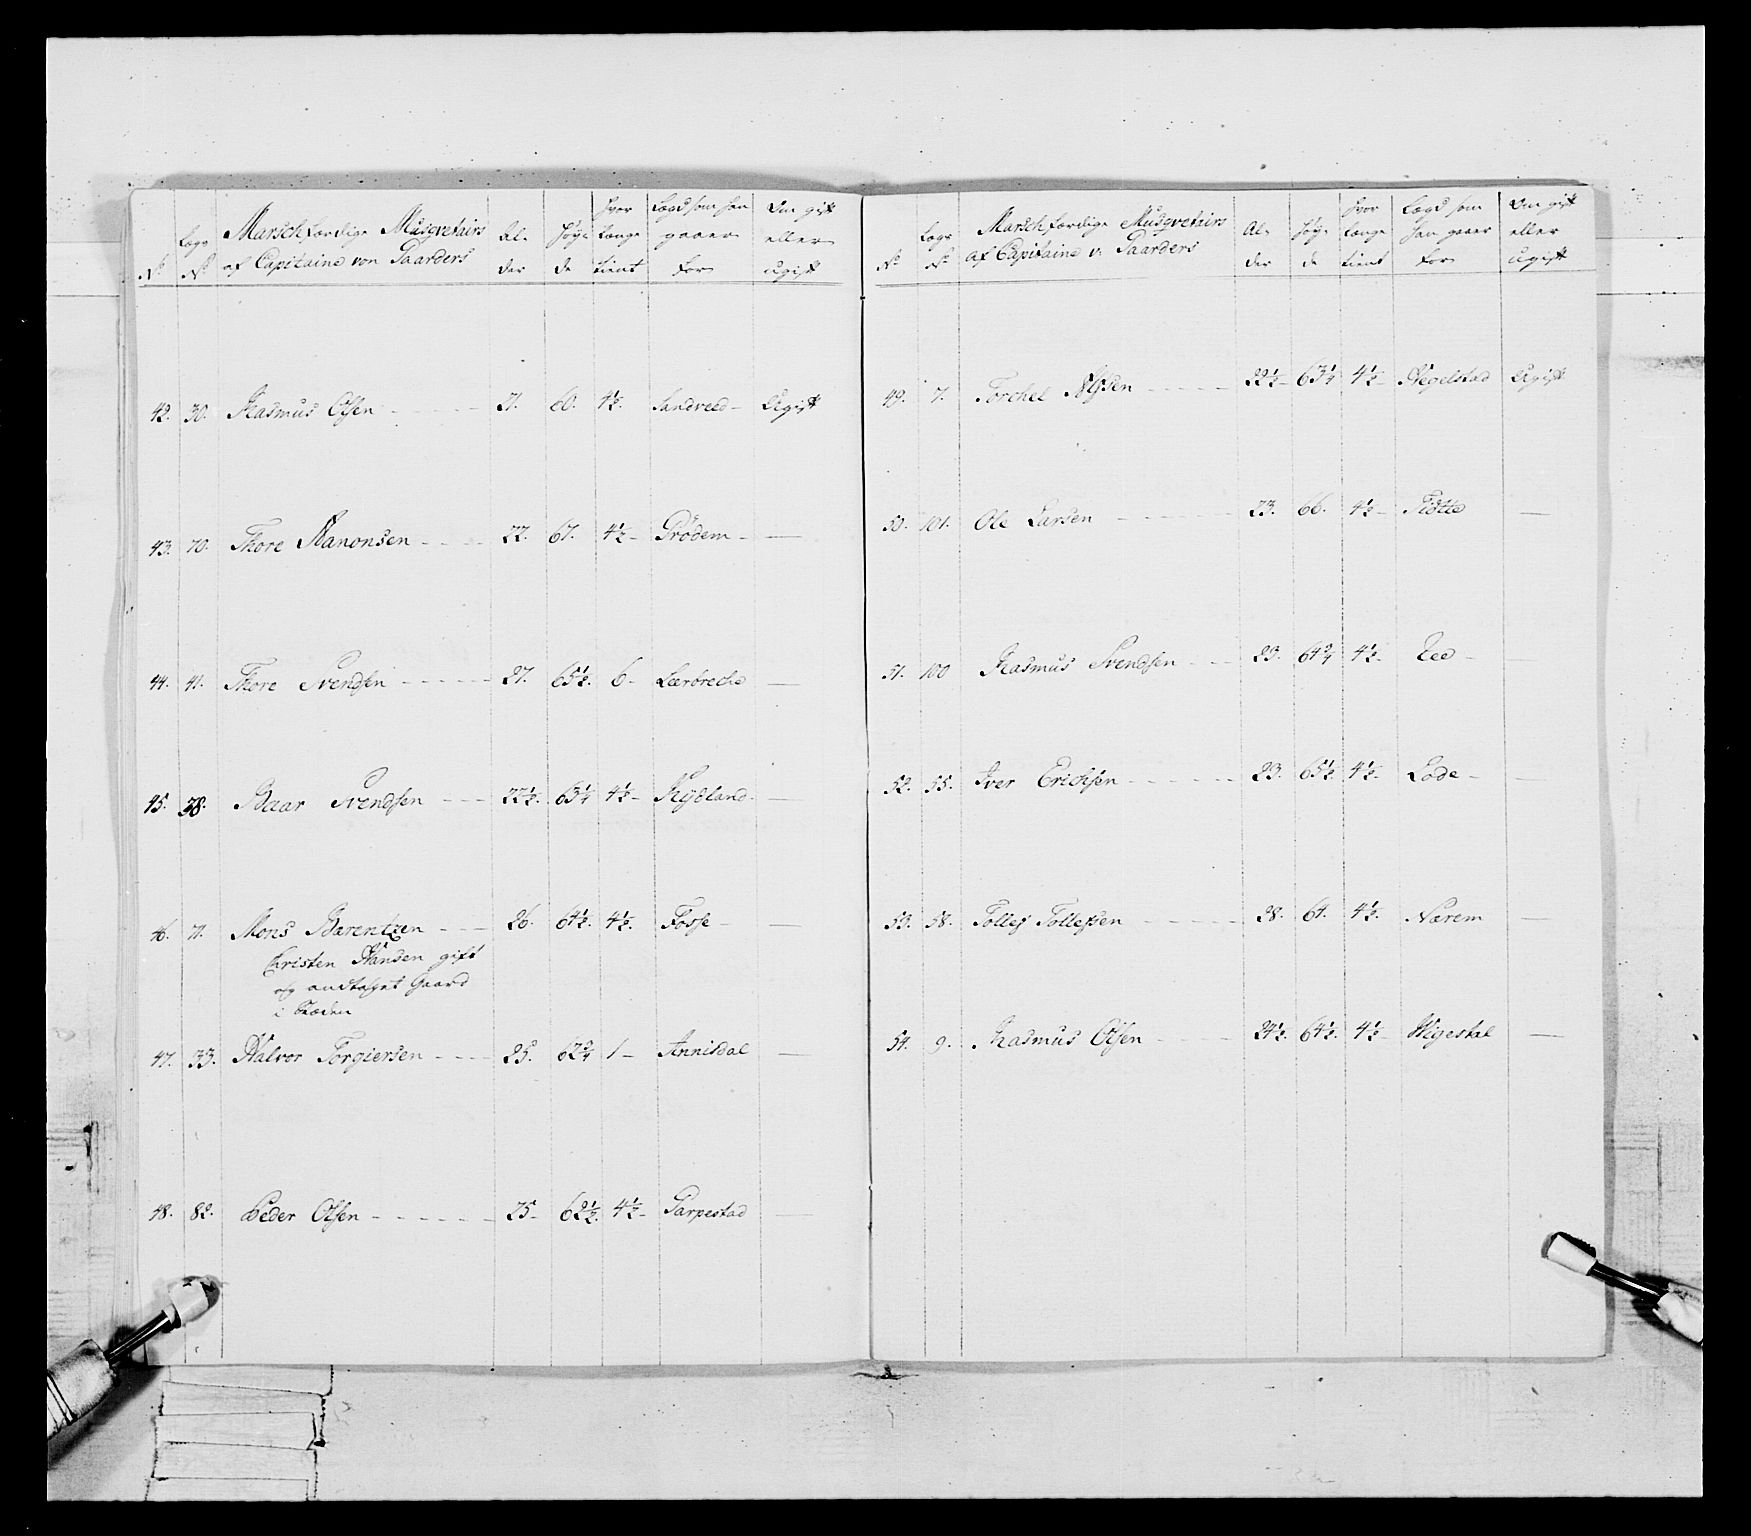 N° Lægs N° Marschfærdige Musqvetairs af Capitaine von Gaarders Al- der Høy- de Hvor længe tient Lægd som han gaaer for Om gift eller ugift
42. 30. Rasmus Olsen 21. 60. 4½. Sandveed Ugift
43. 70. Thore Aanonsen 22. 67. 4½ Grödem —
44. 41. Thore Svendsen 27. 65½. 6 Lærbreche —
45. 38. Baar Svendsen 22½. 63¼ 4½ Rydland —
46. 71. Mons Bærentzen 26. 64½. 4½. Fosse —
Christen Hansen gift
og andtaget Gaard
i Stæden
47. 33. Halvor Torgiersen 25. 62¾ 1 Annisdal —
48. 82. Peder Olsen 25 62½. 4½ Garpestad —
N° Lægs N° Marschfærdige Musqvetairs af Capitaine v. Gaarders Al- der Høy- de Hvor længe tient Lægd som han gaaer for Om gift eller ugift
49. 7. Torchel 22½ 63¼ 4½ Hegelstad Ugift
50. 101. Ole Larsen 23. 66. 4½ Tiötte —
51. 100 Rasmus Svendsen 23. 64¾ 4½ Eee —
52. 55. Iver Erichsen 23. 65½ 4½ Lode —
53. 58. Tollef Tollefsen 28. 64. 4½. Nærem —
54. 9. Rasmus Olsen 24½. 64½. 4½ Wigestal —